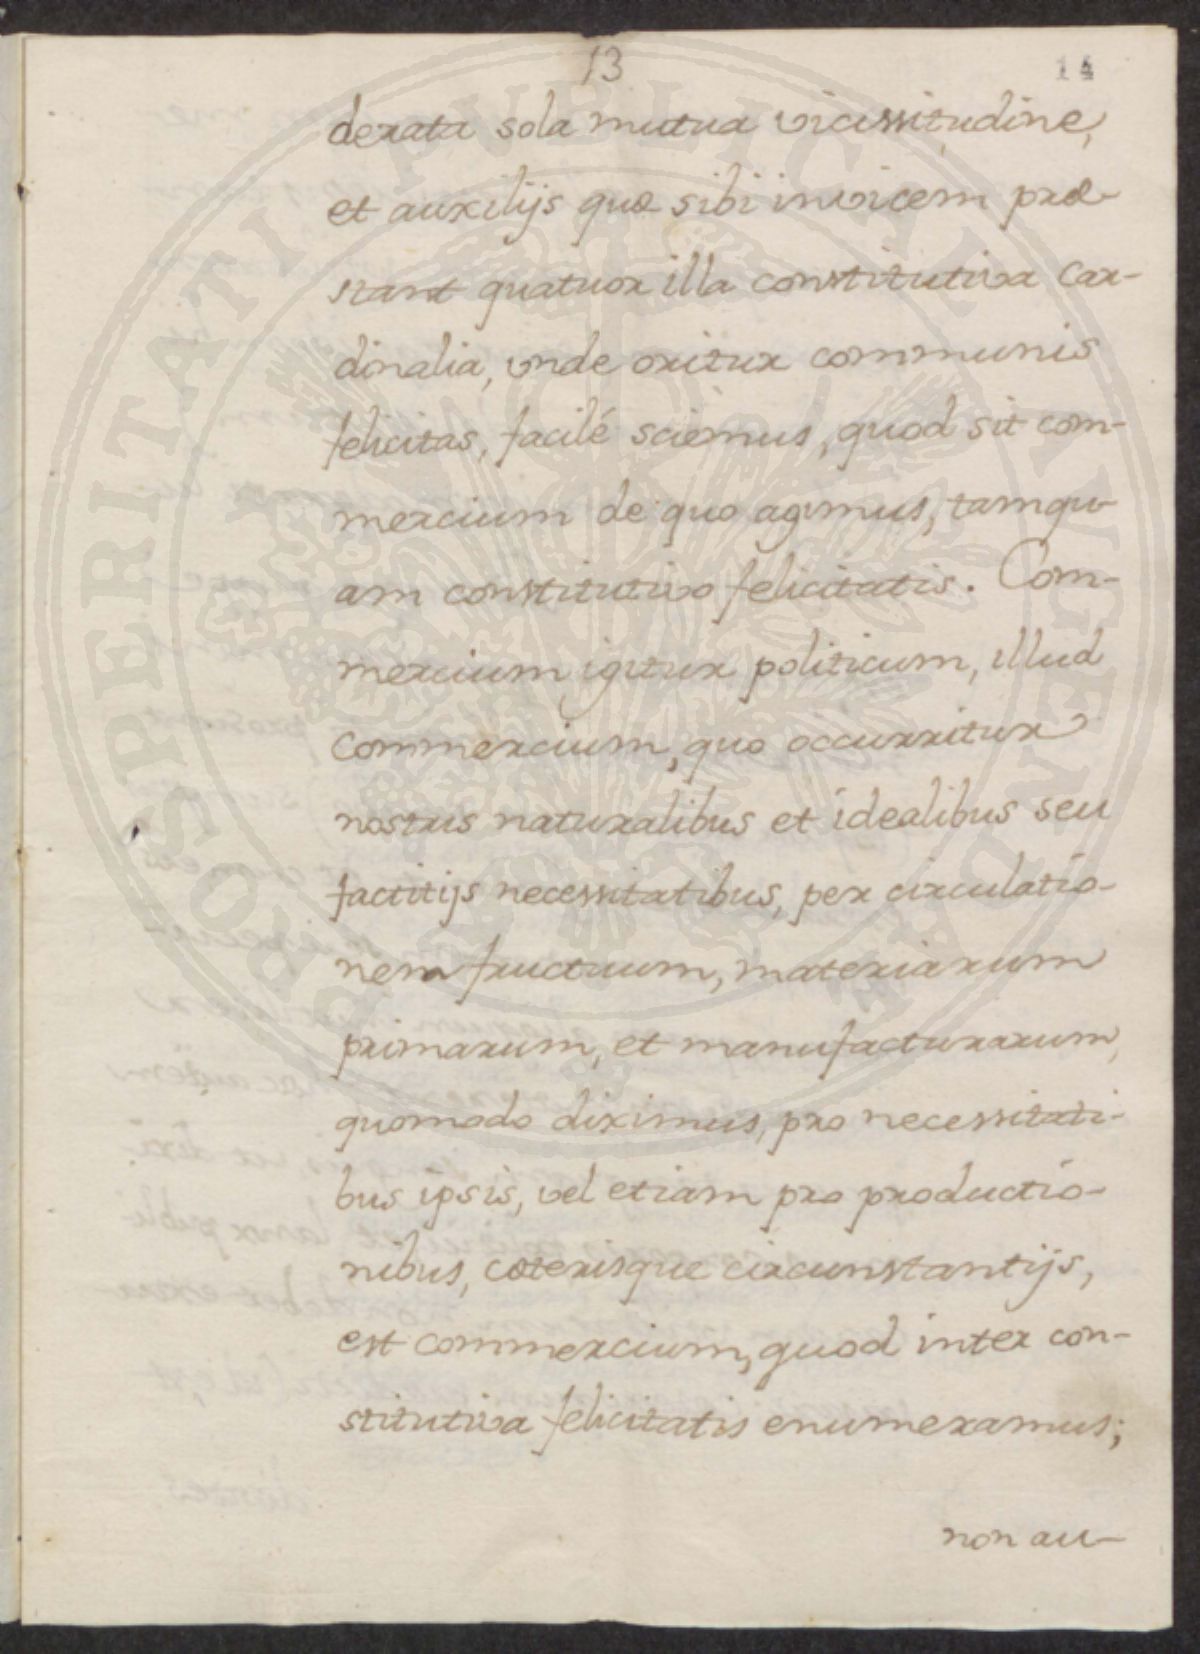 13
14
derata sola mutua vicissitudine,
et auxilijs quæ sibi invicem præ-
stant quatuor illa constitutiva car-
dinalia, unde oritur communis
felicitas, facilé sciemus, quod sit com-
mercium de quo agimus, tamqu-
am constitutivo felicitatis. Com-
mercium igitur politicum, illud
commercium, quo occurritur
nostris naturalibus et idealibus seu
factitijs necessitatibus, per circulatio-
nem fructuum, materiarum
primarum, et manufacturarum,
quomodo diximus, pro necessitati-
bus ipsis, vel etiam pro productio-
nibus, cæterisque circunstantijs,
est commercium, quod inter con-
stitutiva felicitatis enumeramus;
non au-
PROSPERITATI PVBLICAE AVGENDAE